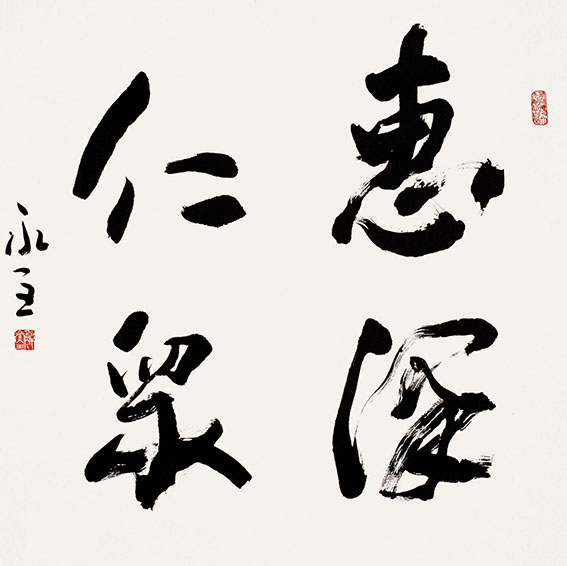 惠深
仁眾
永